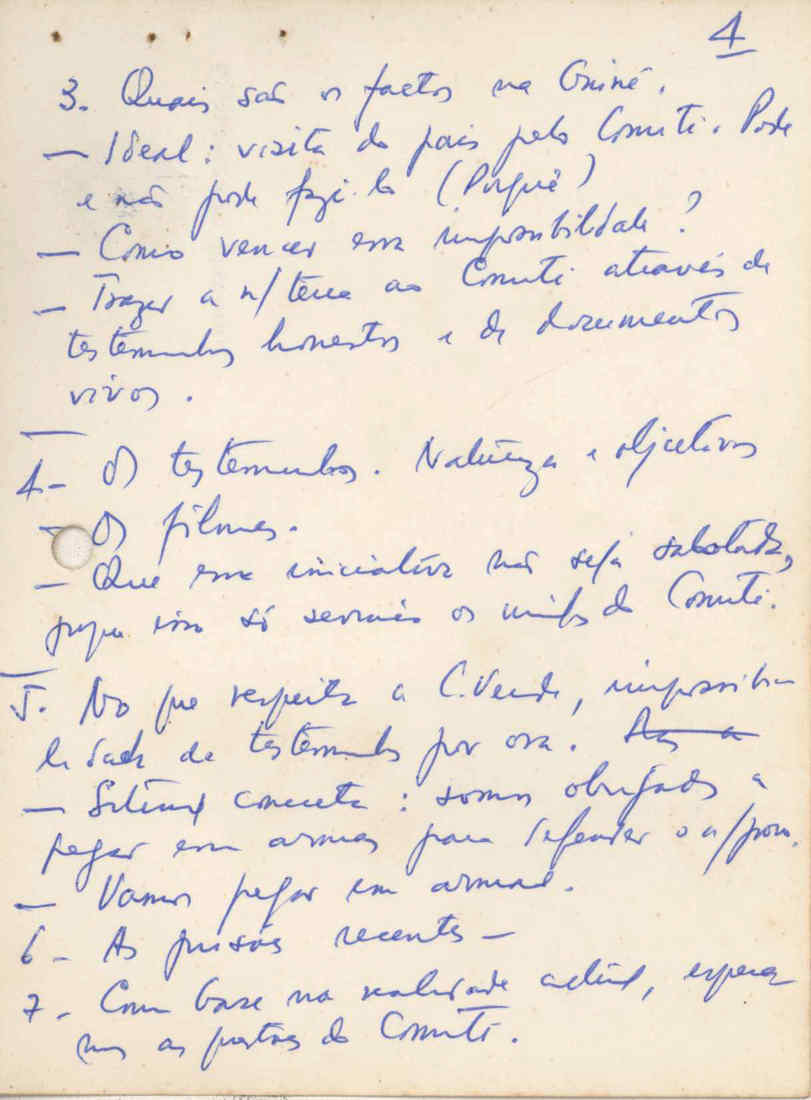 4
3. Quais são os factos na Guiné.
— Ideal: visita do país pelo Comité. Pode
e não pode fazê-la (Porquê)
— Como vencer essa impossibilidade?
— Trazer a n/ terra ao Comité através de
testemunhos honestos e de documentos
vivos.
4- Os testemunhos. Natureza e objectivos
- Os filmes.
— Que essa iniciativa não seja sabotada,
isso só
servirá os
do Comité.
5. No que respeita a C. Verde, impossibi-
lidade de testemunhos por ora.
— Situação concreta: somos obrigados a
pegar em armas para defender o n/ povo.
— Vamos pegar em armas.
6- As prisões recentes —
7- Com base na realidade actual, espera
mos as
do Comité.